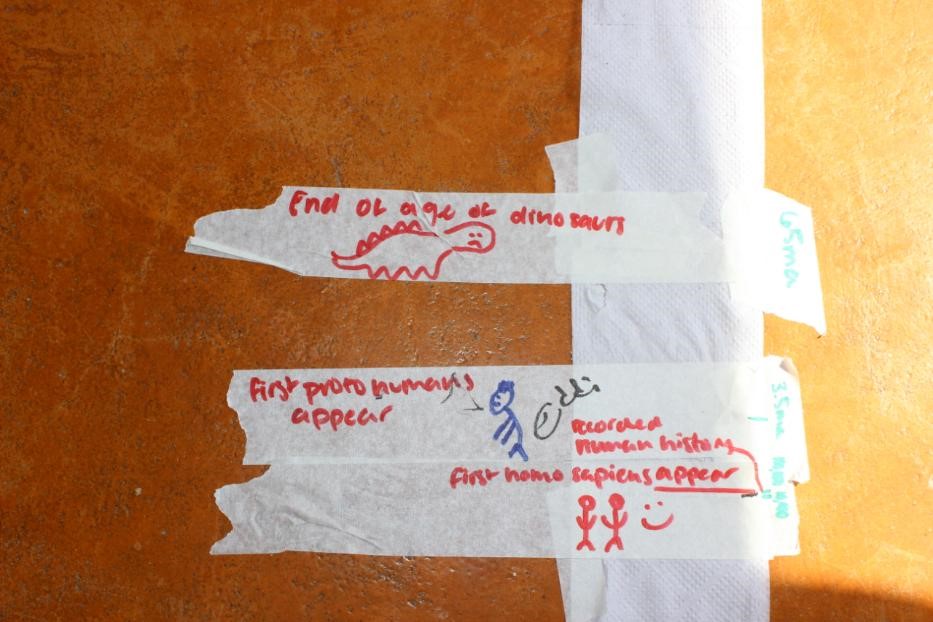 End of age of dinosaurs
65ma
First proto humans
appear
3.5ma
recorded
Human history
First homo sapiens appear